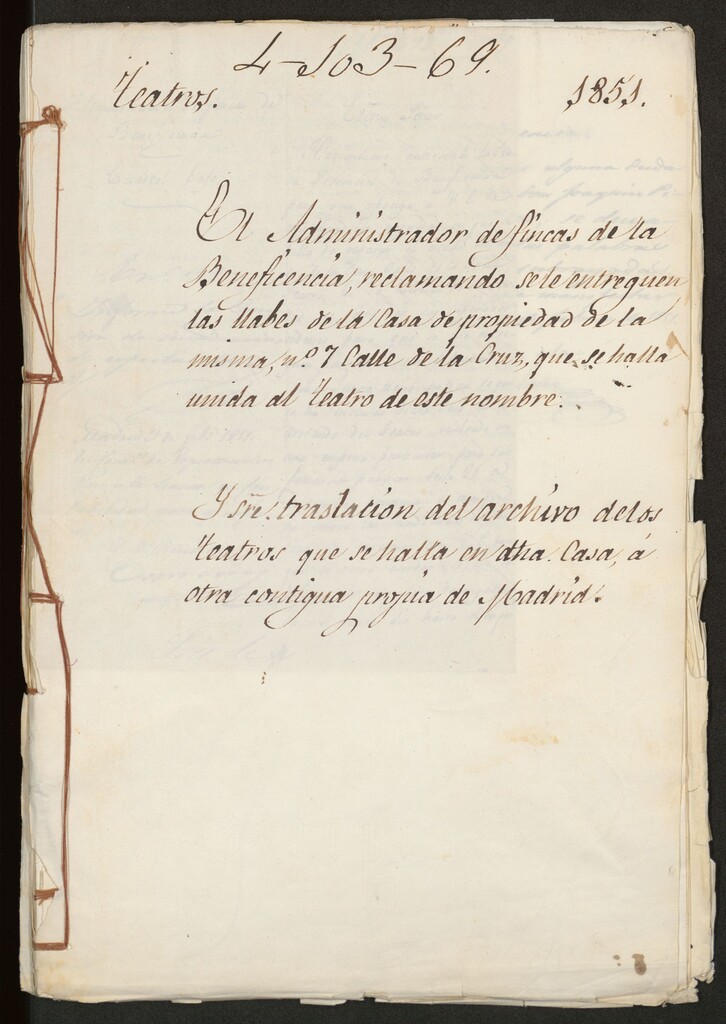 4-103-69.
Teatros. 1851.
El Administrador de fincas de la
Beneficencia, reclamando se le entreguen
las llabes de la Casa de propiedad de la
misma, nº 7 Calle de la Cruz, que se halla
unida al Teatro de este nombre.
Y sre. traslacion del archivo de los
Teatros que se halla en dha. Casa, á
otra contigua propia de Madrid.